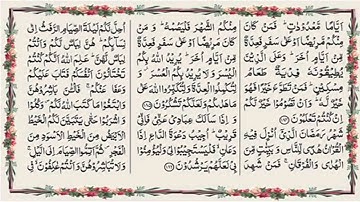 اَيَّامًا مَّعْدُوْدٰتٍ ؕ فَمَنْ كَانَ
مِنْكُمْ مَّرِيْضًا اَوْ عَلٰى سَفَرٍ فَعِدَّةٌ
مِّنْ اَيَّامٍ اُخَرَ ؕ وَ عَلَى الَّذِيْنَ
يُطِيْقُوْنَهٗ فِدْيَةٌ طَعَامُ
خَيْرٌ لَّهٗ ؕ وَ اَنْ تَصُوْمُوْا خَيْرٌ لَّكُمْ
اِنْ كُنْتُمْ تَعْلَمُوْنَ
شَهْرُ رَمَضَانَ الَّذِيْۤ اُنْزِلَ فِيْهِ
الْقُرْاٰنُ هُدًى لِّلنَّاسِ وَ بَيِّنٰتٍ مِّنَ
الْهُدٰى وَ الْفُرْقَانِ ۚ فَمَنْ شَهِدَ
مِنْكُمُ الشَّهْرَ فَلْيَصُمْهُ ؕ وَ مَنْ
كَانَ مَرِيْضًا اَوْ عَلٰى سَفَرٍ فَعِدَّةٌ
مِّنْ اَيَّامٍ اُخَرَ ؕ يُرِيْدُ اللّٰهُ بِكُمُ
الْيُسْرَ وَ لَا يُرِيْدُ بِكُمُ الْعُسْرَ
مَا هَدٰىكُمْ وَ لَعَلَّكُمْ تَشْكُرُوْنَ
وَ اِذَا سَاَلَكَ عِبَادِيْ عَنِّيْ فَاِنِّيْ
قَرِيْبٌ ؕ اُجِيْبُ دَعْوَةَ الدَّاعِ اِذَا
دَعَانِ ۙ فَلْيَسْتَجِيْبُوْا لِيْ وَ لْيُؤْمِنُوْا
بِيْ لَعَلَّهُمْ يَرْشُدُوْنَ
اُحِلَّ لَكُمْ لَيْلَةَ الصِّيَامِ الرَّفَثُ اِلٰى
نِسَآىِٕكُمْ ؕ هُنَّ لِبَاسٌ لَّكُمْ وَ اَنْتُمْ
لِبَاسٌ لَّهُنَّ ؕ عَلِمَ اللّٰهُ اَنَّكُمْ كُنْتُمْ
تَخْتَانُوْنَ اَنْفُسَكُمْ فَتَابَ عَلَيْكُمْ
وَ عَفَا عَنْكُمْ
وَ ابْتَغُوْا مَا كَتَبَ اللّٰهُ لَكُمْ ۪ وَ كُلُوْا
وَ اشْرَبُوْا حَتّٰى يَتَبَيَّنَ لَكُمُ الْخَيْطُ
الْاَبْيَضُ مِنَ الْخَيْطِ الْاَسْوَدِ مِنَ
الْفَجْرِ ۪ ثُمَّ اَتِمُّوا الصِّيَامَ اِلَى الَّيْلِ ۚ
وَ لَا تُبَاشِرُوْهُنَّ وَ اَنْتُمْ عٰكِفُوْنَ ۙ فِي